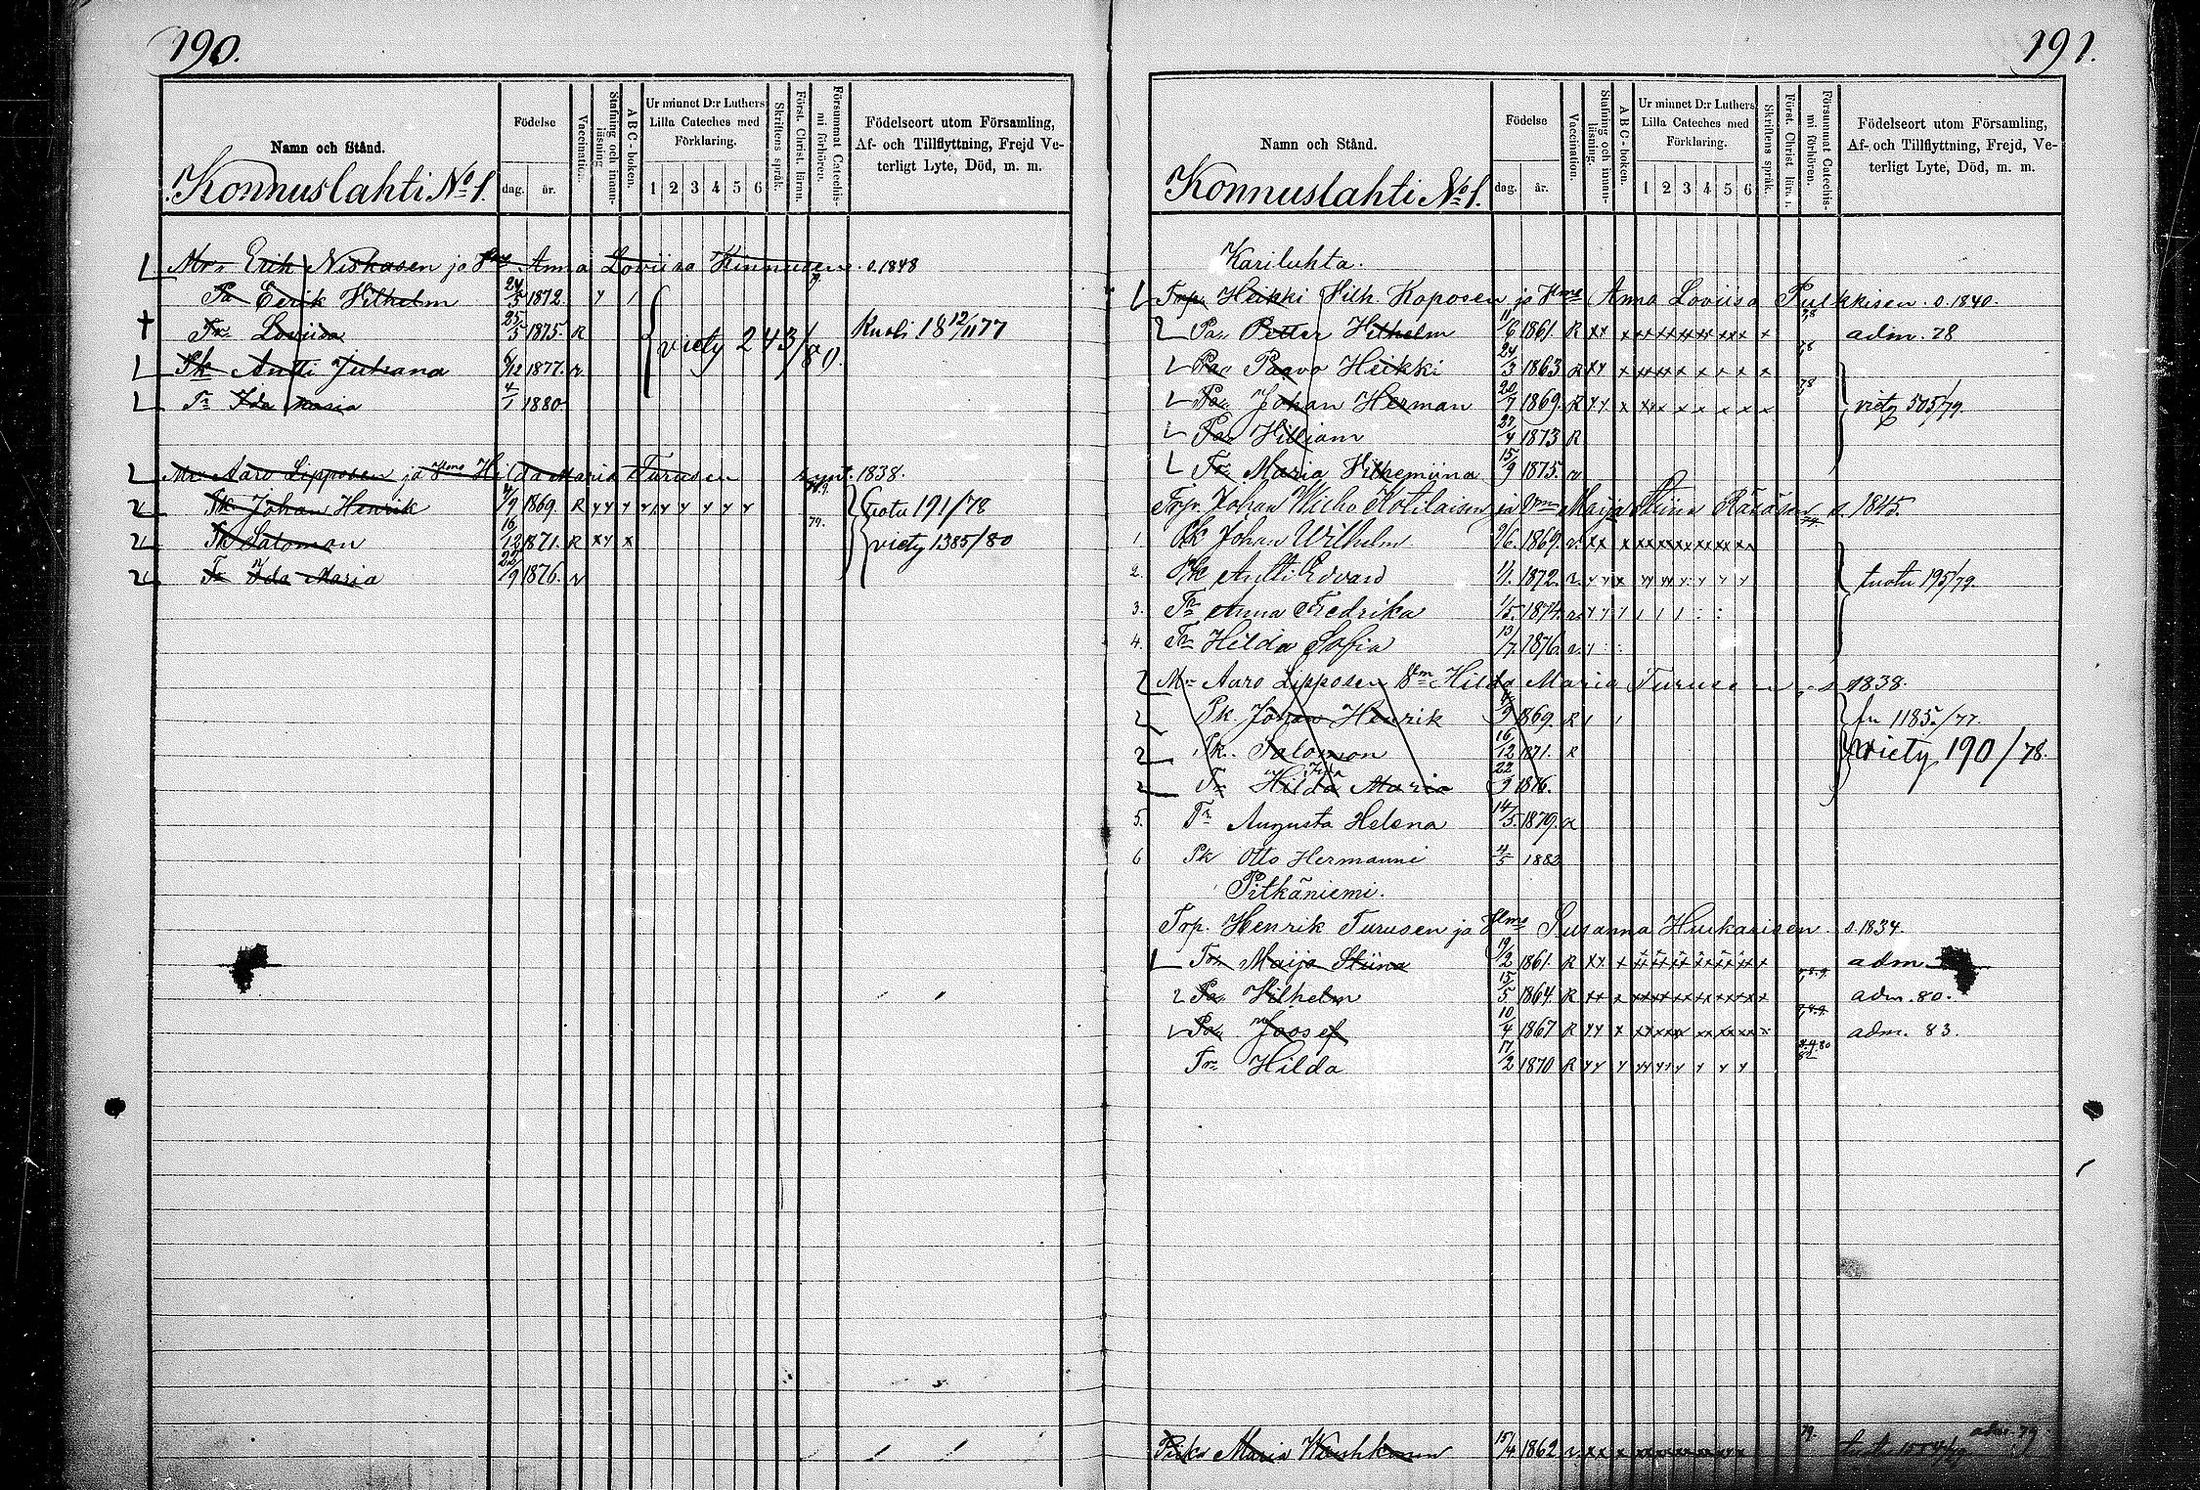 190.
Namn och Stånd.
Födelse
dag.
år.
Vaccination.
Stafning och innan-läsning.
A B C - boken.
Ur minnet D:r Luthers
Lilla Cateches med
Förklaring.
1 2 3 4 5 6
Skriftens språk.
Först. Christ. läran.
Försummat Catechis-mi förhören.
Födelseort utom Församling,
Af- och Tillflyttning, Frejd Ve-
terligt Lyte, Död, m. m.
Konnuslahti No 1.
Mr. Erik Niskasen ja Hmo Anna Loviisa Kinnusen s. 1848
Pa Eerik Vilhelm 24/5 1872.
Tr. Loviisa 25/5 1875. R Kuoli 18 12/11 77
viety 243/80.
Pk Antti Juhana 6/12 1877. r
Tr Ida Maria 4/1 1880
Mr Aaro Lipposen ja Hmo Hilda Maria Turusen synt. 1838.
Pk Johan Henrik 4/9 1869. R tuotu 191/78
Pk Salomon 16/12 1871. R viety 1385/80
Tr Ida Maria 22/9 1876. r
191.
Namn och Stånd.
Födelse
dag.
år.
Vaccination.
Stafning och innan-läsning.
A B C - boken.
Ur minnet D:r Luthers
Lilla Cateches med
Förklaring.
1 2 3 4 5 6
Skriftens språk.
Först. Christ. lär.
Försummat Catechis-mi förhören.
Födelseort utom Församling,
Af- och Tillflyttning, Frejd, Ve-
terligt Lyte, Död, m. m.
Konnuslahti No 1.
Kariluhta.
Trp. Heikki Vilh. Koposen ja Hmo Anna Loviisa Pulkkisen s. 1840.
Pa. Petter Vilhelm 11/6 1861. R adm. 78
Pa. Paavo Heikki 24/3 1863 R
Pa. Johan Herman 20/7 1869. R viety 505/79.
Pa. Villiam 27/4 1873 R
Tr. Maria Vilhemiina 15/9 1875. r
Trp. Johan Wilho Kotilaisen ja Vmo Maija Stiina Räsäsen s. 1845.
1. Pk Johan Wilhelm 9/6. 1869. r
2. Pk Antti Edvard 1/1. 1872. r tuotu 195/79.
3. Tr Anna Fredrika 1/5. 1874. r
4. Tr Hilda Sofia 13/7. 1876. r
Mr Aaro Lipposen Vmo Hilda Maria Turusen s 1838.
Pk. Johan Henrik 4/9 1869. R fr 1185/77.
Pk. Salomon 16/12 1871. R viety 190/78.
Ida
Tr Hilda Maria 22/9 1876.
5. Tr Augusta Helena 14/5. 1879. r
6 Pk Otto Hermanni 4/5 1882
Pitkäniemi.
Trp. Henrik Turusen ja Hmo Susanna Huskarisen s. 1834.
Tr. Maija Stiina 19/2 1861. R adm
Pa. Vilhelm 15/5 1864. R adm. 80.
Pa. Joosef 10/4 1867 R adm. 83.
Tr. Hilda 17/2 1870 R
Piika Maria 15/4 1862 r adm. 79